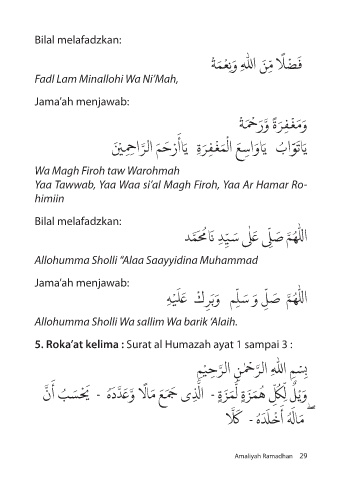 Bilal melafadzkan:
فَضْلًا مِّنَ اللهِ وَنِعْمَةً
Fadl Lam Minallohi Wa Ni'Mah,
Jama'ah menjawab:
وَمَغْفِرَةً وَّرَحْمَةً
يَاتَوَّابُ يَاوَاسِعَ الْمَغْفِرَةِ يَاأَرْحَمَ الرَّاحِمِيْنَ
Wa Magh Firoh taw Warohmah
Yaa Tawwab, Yaa Waa si'al Magh Firoh, Yaa Ar Hamar Ro-
himiin
Bilal melafadzkan:
اللّٰهُمَّ صَلِّى عَلٰى سَيِّدِ نَامُحَمَّد
Allohumma Sholli "Alaa Saayyidina Muhammad
Jama'ah menjawab:
اللّٰهُمَّ صَلِّ وَ سَلِّمْ وَبَرِكْ عَلَيْهِ
Allohumma Sholli Wa sallim Wa barik 'Alaih.
5. Roka'at kelima : Surat al Humazah ayat 1 sampai 3 :
بِسْمِ اللهِ الرَّحْمٰنِ الرَّحِيْمِ
وَيْلٌ لِّكُلِّ هُمَزَةٍ لُّمَزَةٍ - الَّذِى جَمَعَ مَالًا وَّعَدَّدَهُ - يَحْسَبُ أَنَّ
مَالَهُ أَخْلَدَهُ - كَلَّا
Amaliyah Ramadhan 29